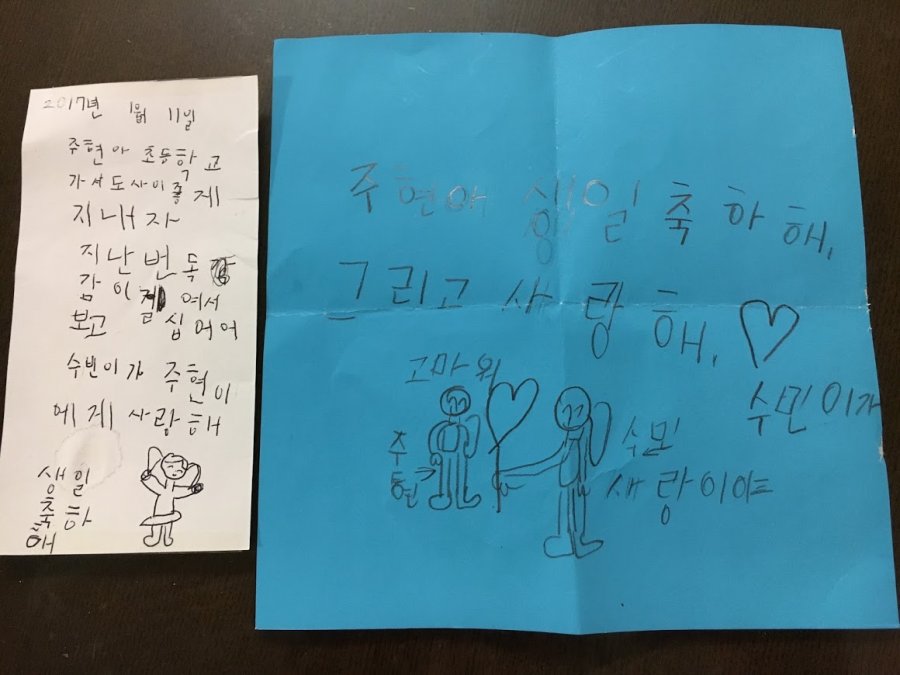 2017년 1월 11일
주현아 초등학교
가서도 사이좋게
지내자
지난번 독감
감이 걸 여서
보고 십어어
수빈이가 주현이
에게 사랑해
생일
축하
해
주현아 생일 축하해,
그리고 사랑해,
수민이가
고마워
주현
수민
새랑이야